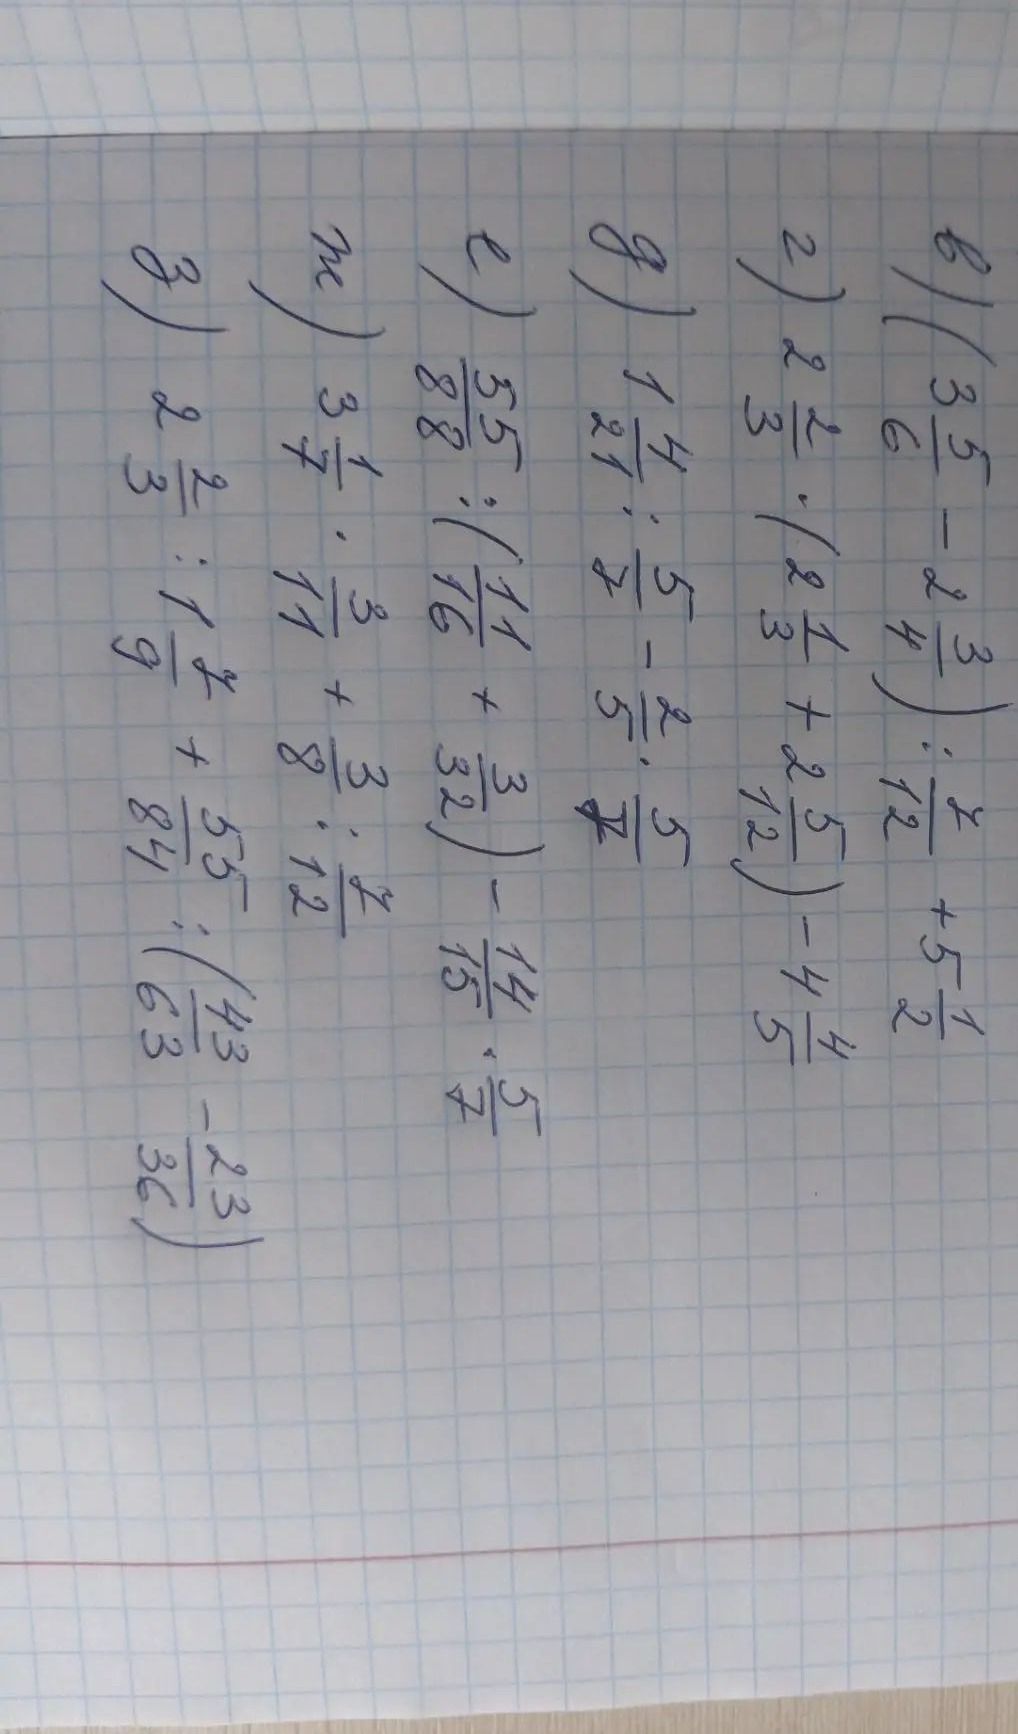 в) (3 5/6 - 2 3/4) : 7/12 + 5 1/2
г) 2 2/3 · (2 1/3 + 2 5/12) - 4 4/5
д) 1 4/21 : 5/7 - 2/5 · 5/7
е) 55/88 : (11/16 + 3/32) - 14/15 · 5/7
ж) 3 1/7 · 3/11 + 3/8 : 7/12
з) 2 2/3 : 1 7/9 + 55/84 : (43/63 - 23/36)